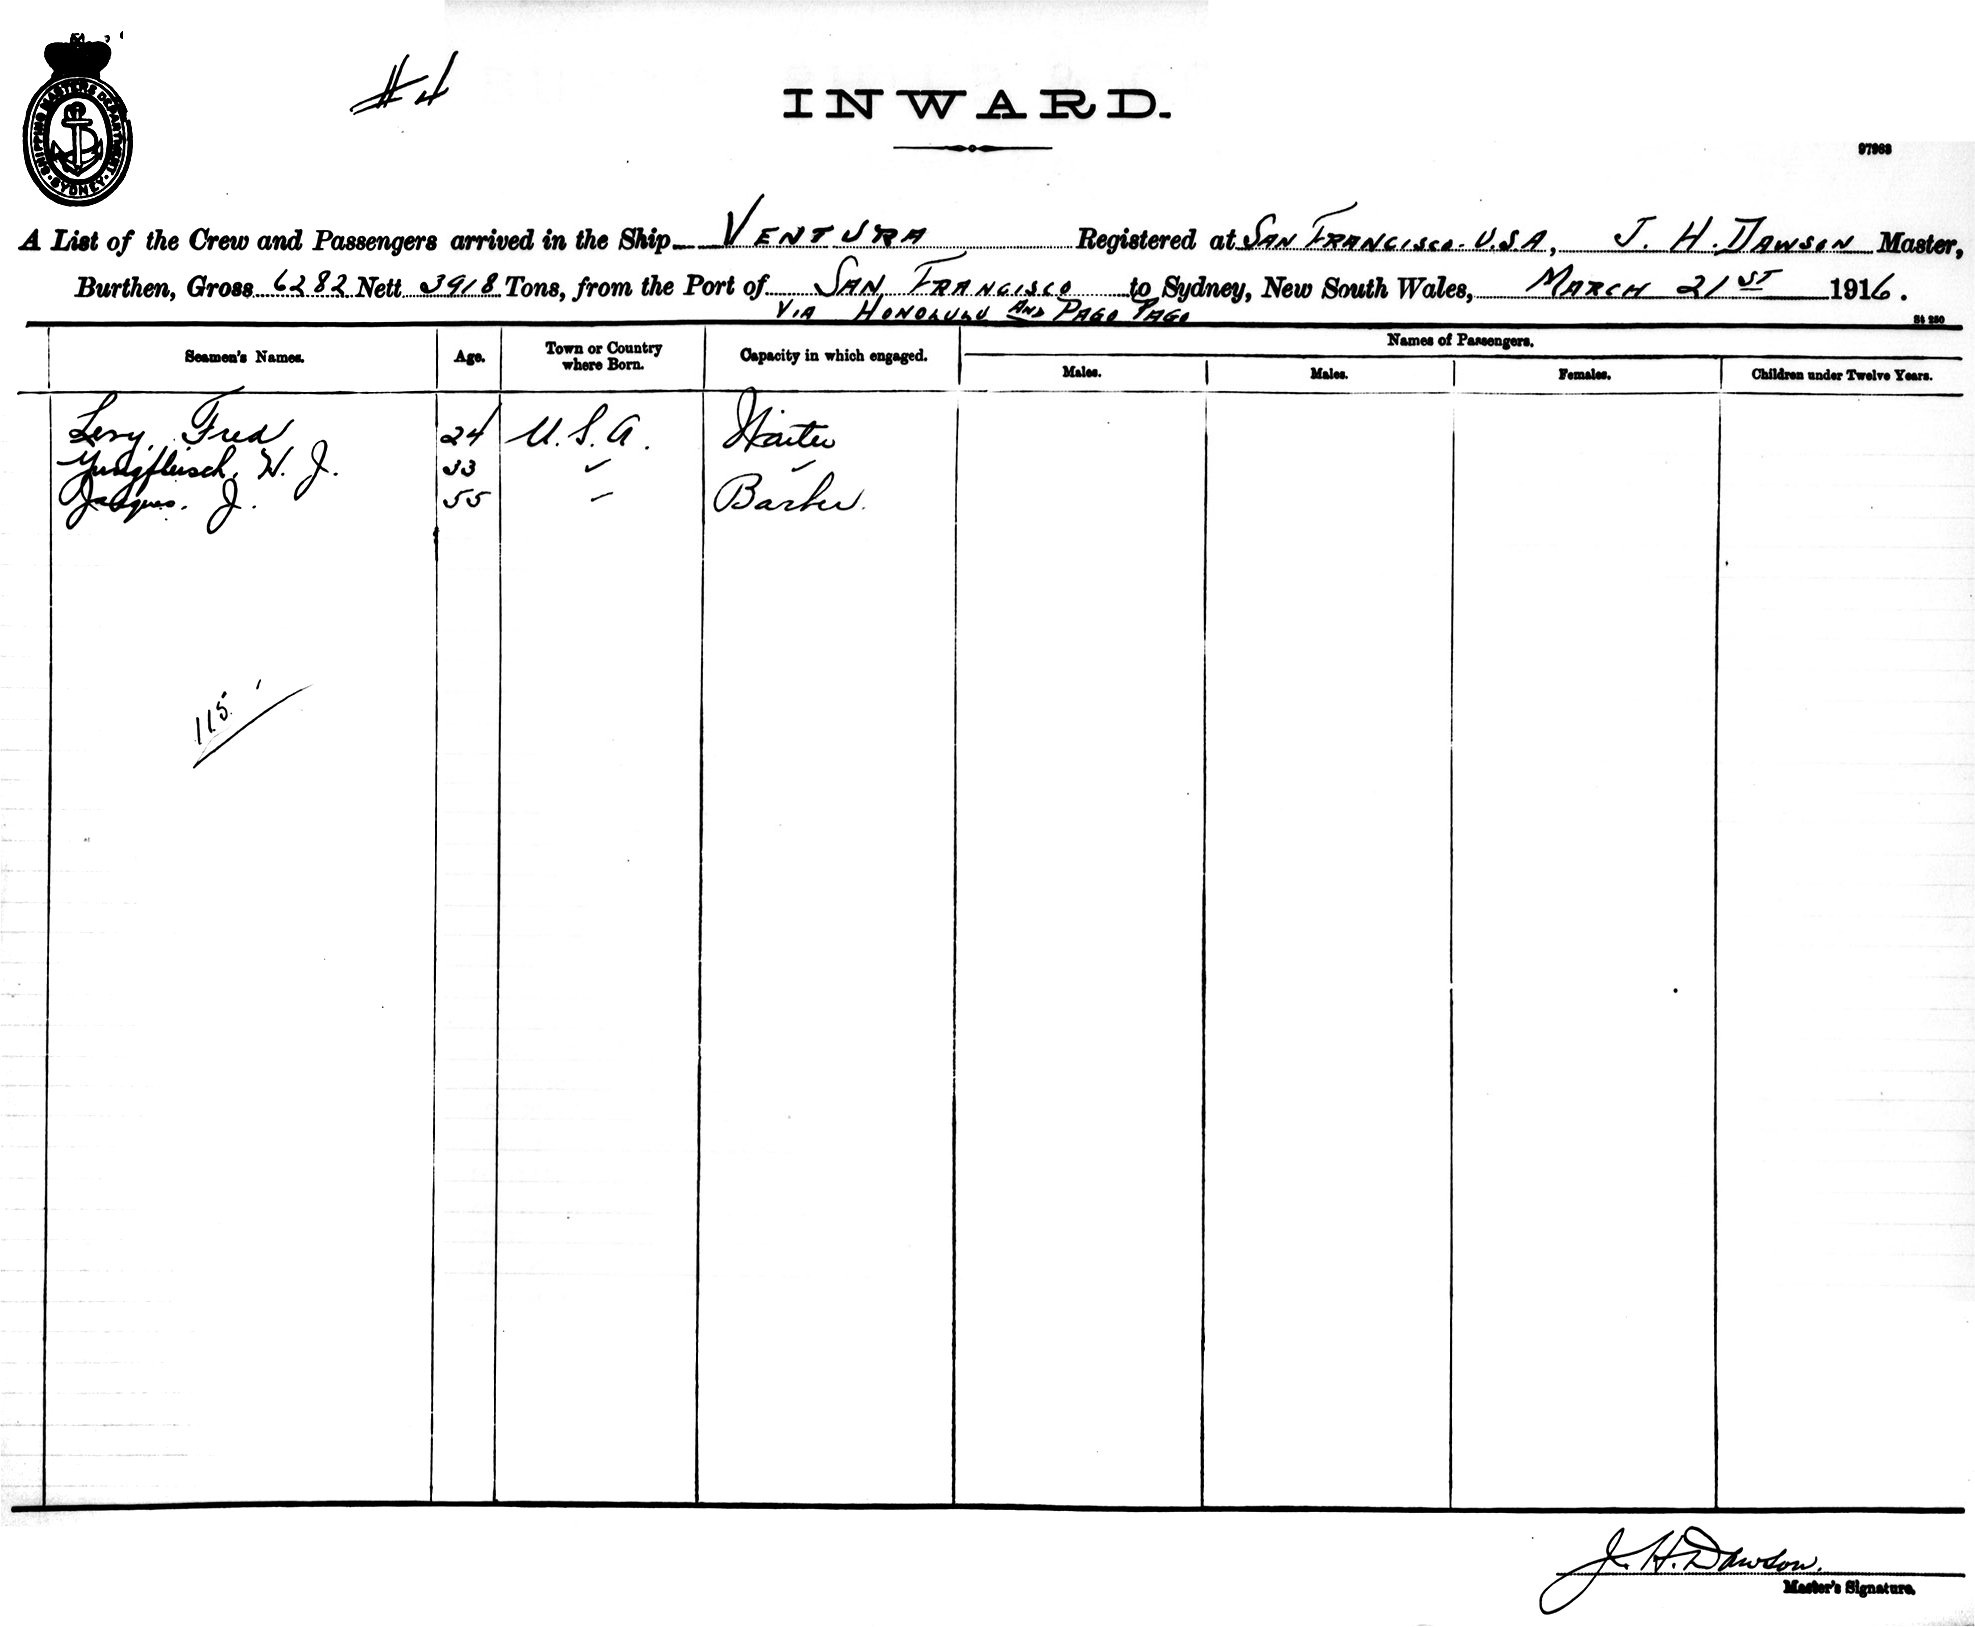 SHIPPING MASTERS DEPARTMENT · SYDNEY ·
#4
INWARD.
97963
A List of the Crew and Passengers arrived in the Ship VENTURA Registered at SAN FRANCISCO. U.S.A, J. H. DAWSON Master,
Burthen, Gross 6282 Nett 3918 Tons, from the Port of SAN FRANCISCO to Sydney, New South Wales, MARCH 21ST 1916.
VIA HONOLULU AND PAGO PAGO
St 250
Seamen's Names. Age. Town or Country where Born. Capacity in which engaged. Names of Passengers.
Males. Males. Females. Children under Twelve Years.
Levy, Fred 24 U.S.A. Waiter
Jungfleisch, W. J. 33 " "
Jacques. J. 55 " Barber.
115
J. H. Dawson.
Master's Signature.